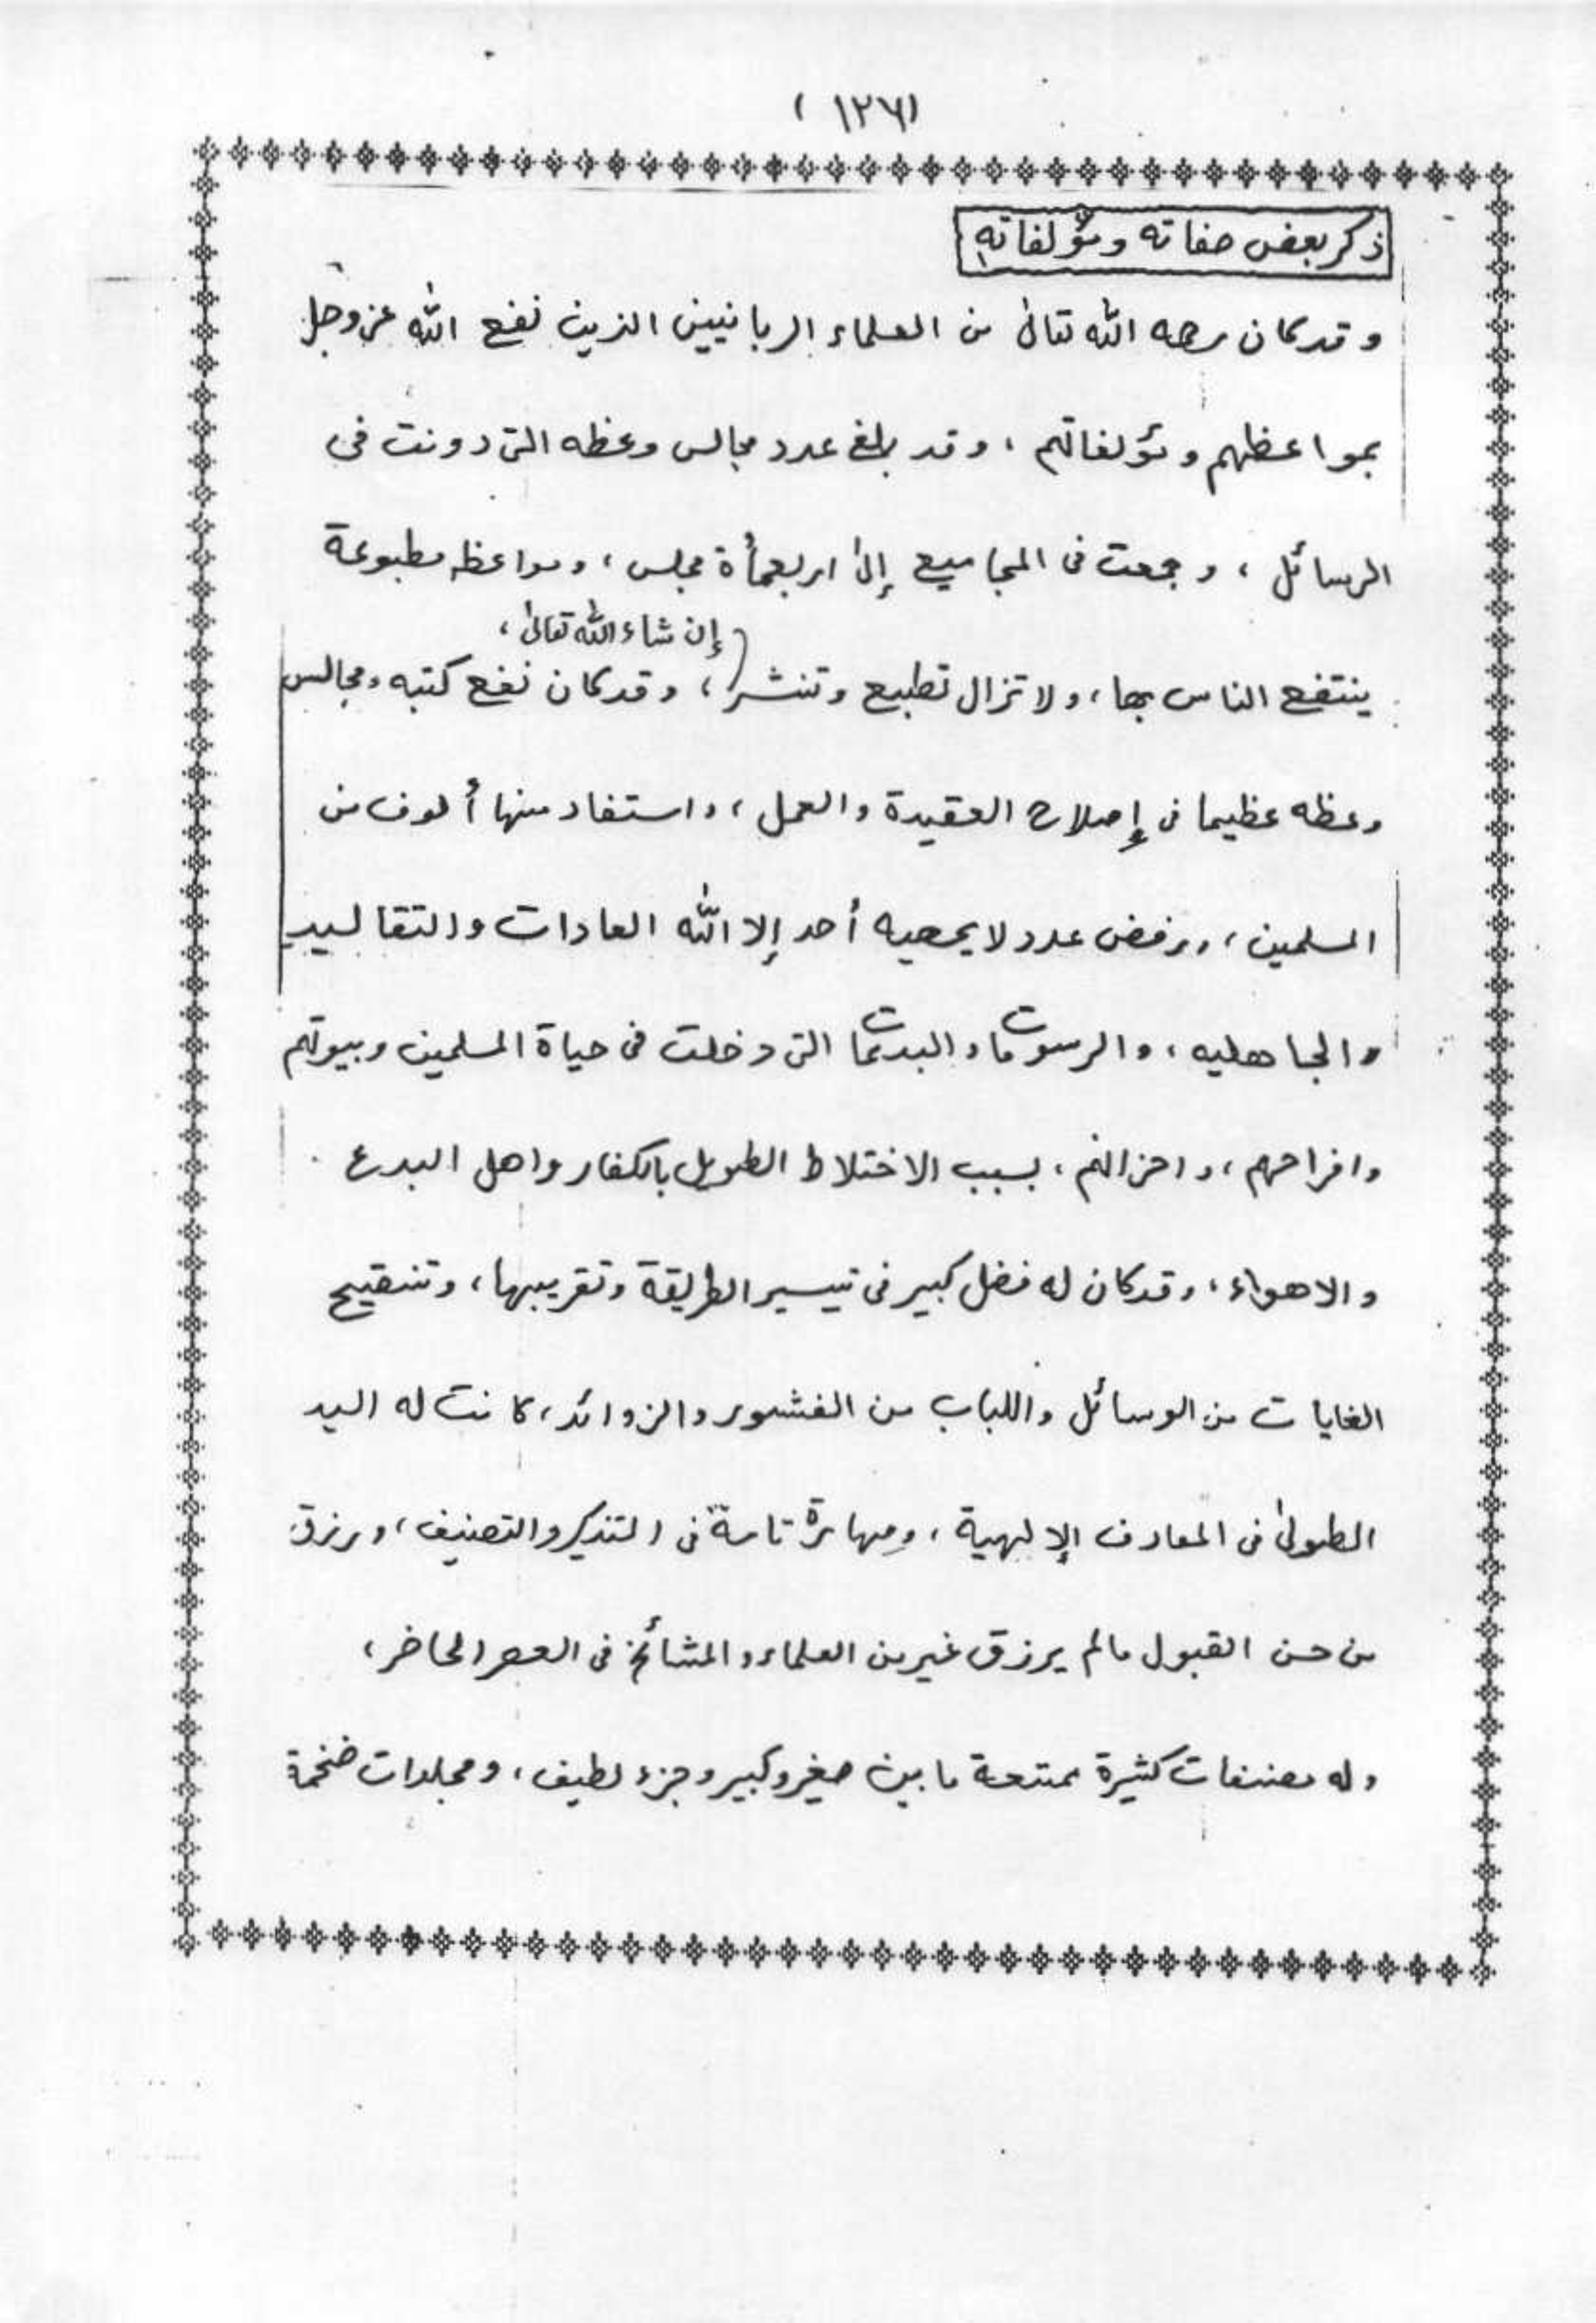 (١٢٦)
ذكر بعض صفاته ومؤلفاته
وقد كان رحمه الله تعالى من العلماء الربانيين الذين نفع الله عز وجل
بمواعظهم ومؤلفاتهم ، وقد بلغ عدد مجالس وعظه التى دونت فى
الرسائل ، وجمعت فى المجاميع إلى اربعمأة مجلس ، ومواعظه مطبوعة
إن شاء الله تعالى ،
ينتفع الناس بها ، ولا تزال تطبع وتنشر ، وقد كان نفع كتبه ومجالس
وعظه عظيما فى إصلاح العقيدة والعمل ، واستفاد منها ألوف من
المسلمين ، ورفض عدد لا يحصيه أحد إلا الله العادات والتقاليد
والجاهليه ، والرسومات والبدعات التى دخلت فى حياة المسلمين وبيوتهم
وافراحهم ، واحزانهم ، بسبب الاختلاط الطويل بالكفار واهل البدع
والاهواء ، وقد كان له فضل كبير فى تيسير الطريقة وتقريبها ، وتنقيح
الغايات من الوسائل واللباب من القشور والزوائد ، كانت له اليد
الطولى فى المعارف الإلهية ، ومهارة تامة فى التذكير والتصنيف ، ورزق
من حسن القبول مالم يرزق غير من العلماء والمشائخ فى العصر الحاضر ،
وله مصنفات كثيرة ممتعة ما بين صغير وكبير وجزء لطيف ، ومجلدات ضخمة